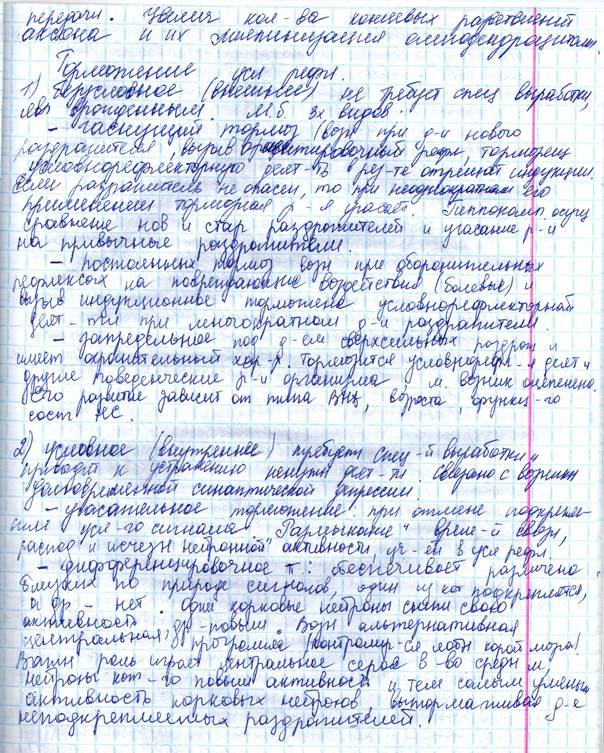 передачи. Увелич кол-ва концевых разветвлений
аксона и их миелинизация олигодендроцитами.
Торможение усл рефл.
1) безусловное (внешнее) не требует спец выработки,
явл врожденным. М.б. 3х видов:
– гаснущий тормоз (возн при д-и нового
раздражителя, вызыв ориентировочный рефл, тормозящ
условнорефлекторную деят-ть в рез-те отрицат индукции.
Если раздражитель не опасен, то при неоднократном его
применении тормозная р-я угасает. Гиппокамп осущ
сравнение нов и стар раздражителей и угасание р-и
на привычные раздражители.
– постоянный тормоз возн при оборонительных
рефлексах на повреждающие воздействия (болевые) и
вызыв индукционное торможение условнорефлекторной
деят-ти при многократном д-и раздражителя.
– запредельное под д-ем сверхсильных раздраж и
имеет охранительный хар-р. Тормозится условнорефл-я деят и
другие поведенческие р-и организма м. возник оцепенение.
Его развитие зависит от типа ВНД, возраста, функц-го
сост НС.
2) условное (внутреннее) требует спец-й выработки и
приводит к устранению ненужн деят-ти. Связано с возник
долговременной синаптической депрессии.
– угасательное торможение: при отмене подкрепле-
ния усл-го сигнала. "Размыкание" време-й связи,
распад и исчезн нейронной активности, уч-ей в усл рефл.
– дифференцировочное т: обеспечивает различение
близких по природе сигналов, один из кот подкрепляется,
а др – нет. одни корковые нейроны снизи свою
активность, др-повыш. Возн альтернативная
центральная программа (контролир-ся лобн корой мозга)
Важн роль играет центральное серое в-во средн м.
нейроны кот-го повыш активность и тем самым уменьш
активность корковых нейронов, вытормаживая д-е
неподкрепляемых раздражителей.